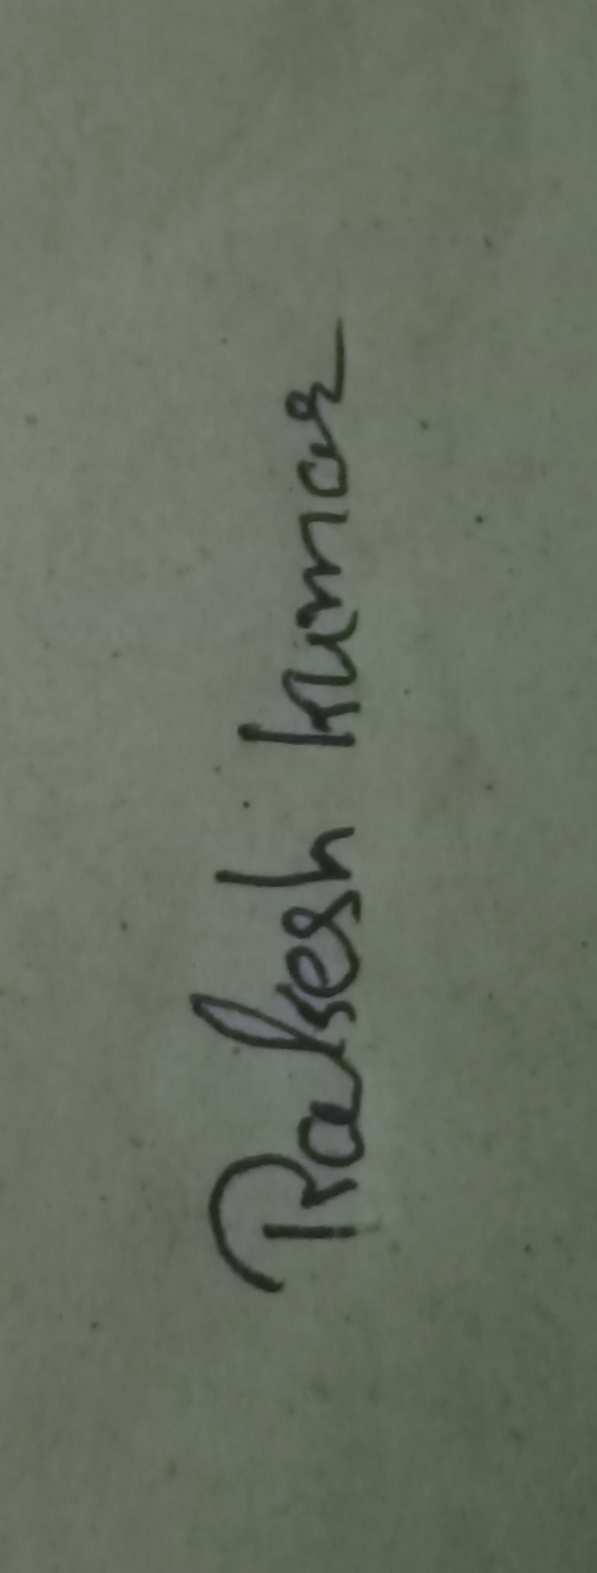 Rakesh kumar